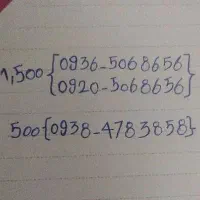 1,500 {0936-5068656}
{0920-5068656}
500 {0938-4783858}